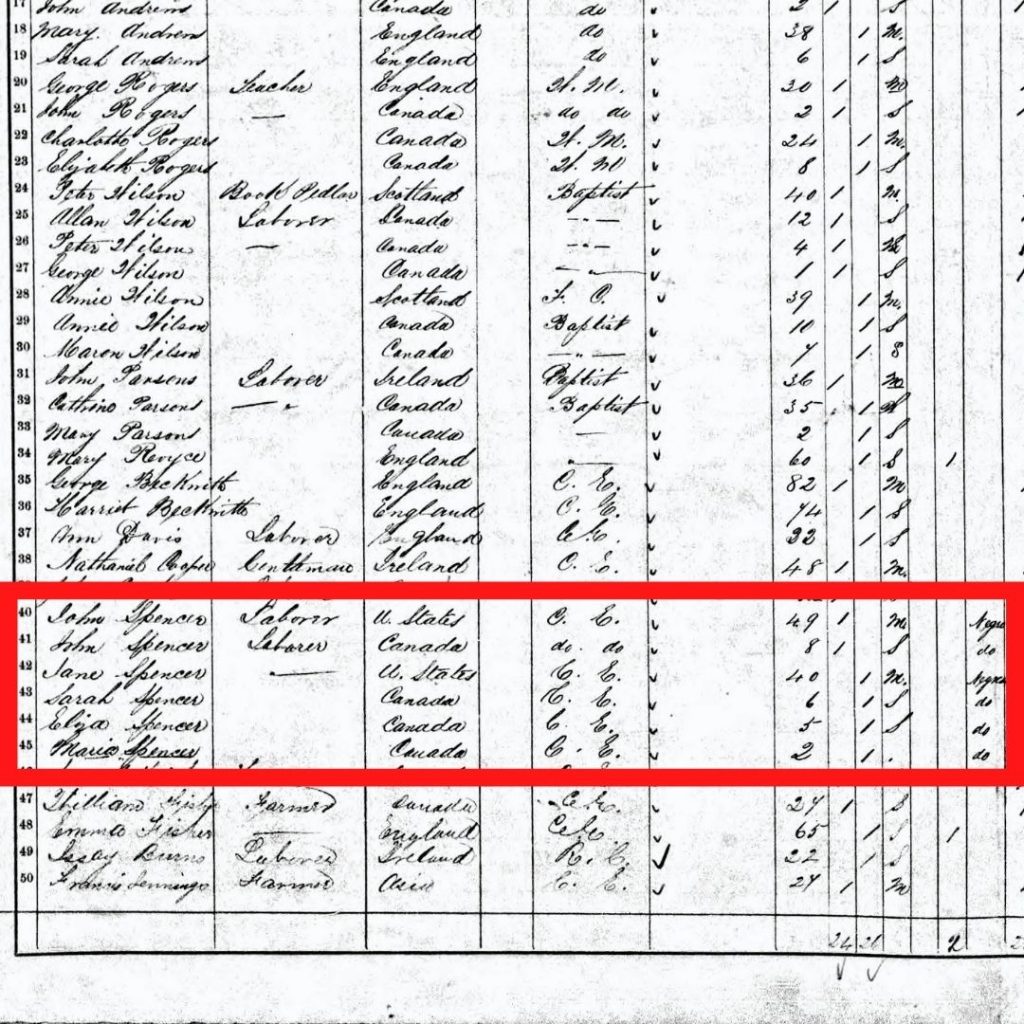 17 John Andrews Canada do 2 1 S
18 Mary Andrews England do 38 1 M.
19 Sarah Andrews England do 6 1 S
20 George Rogers Teacher England W. M. 30 1 M
21 John Rogers — Canada do do 2 1 S
22 Charlotte Rogers Canada W. M. 24 1 M.
23 Elizabeth Rogers Canada W. M 8 1 S
24 Peter Wilson Book Pedlar Scotland Baptist 40 1 M.
25 Allan Wilson Laborer Canada 12 1 S
26 Peter Wilson — Canada 4 1
27 George Wilson Canada 1 1 S
28 Annie Wilson Scotland F. C. 39 1 M.
29 Annie Wilson Canada Baptist 10 1 S
30 Maron Wilson Canada 7 1 S
31 John Parsons Laborer Ireland Baptist 36 1 M
32 Cathrine Parsons Canada Baptist 35 1
33 Mary Parsons Canada — 2 1 S
34 Mary Royce England 60 1 S 1
35 George Beckwith England C. E. 82 1 M
36 Harriet Beckwith England C. E. 74 1 S
37 Ann Davis Laborer England C.E. 32 1 S
38 Nathaniel Cooper Gentleman Ireland C. E. 48 1 M.
40 John Spencer Laborer U. States C. E. 49 1 M Negro
41 John Spencer Laborer Canada do. do 8 1 S do
42 Jane Spencer — U. States C. E. 40 1 M.
43 Sarah Spencer Canada C. E. 6 1 S do
44 Eliza Spencer Canada C. E. 5 1 S do
45 Maria Spencer Canada C. E. 2 1 . do
47 William Farmer Canada C.E. 27 1 S
48 Emma Fisher — England C.E 65 1 S 1
49 Issay Burns Laborer Ireland R. C. 22 1 S
50 Francis Jennings Farmer C. E. 27 1 M
24 26 2